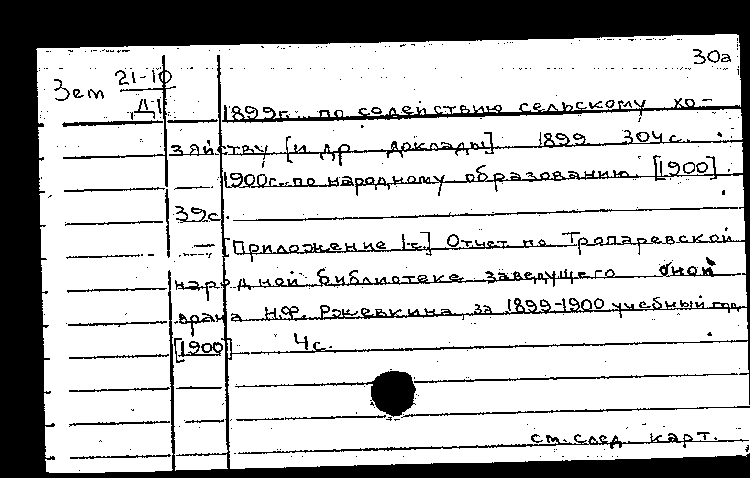 30а
Зет 21-10
Д1
1899г. по содействию сельскому хо-
зяйству [и др. доклады] 1899 304с.
1900г. по народному образованию. [1900]
39с.
— [Приложение 1е] Отчет по Тропаревской
народной библиотеке заведущего оной
врача Н.Ф. Ржевкина за 1899-1900 учебный год
[1900] 4с.
см. след. карт.